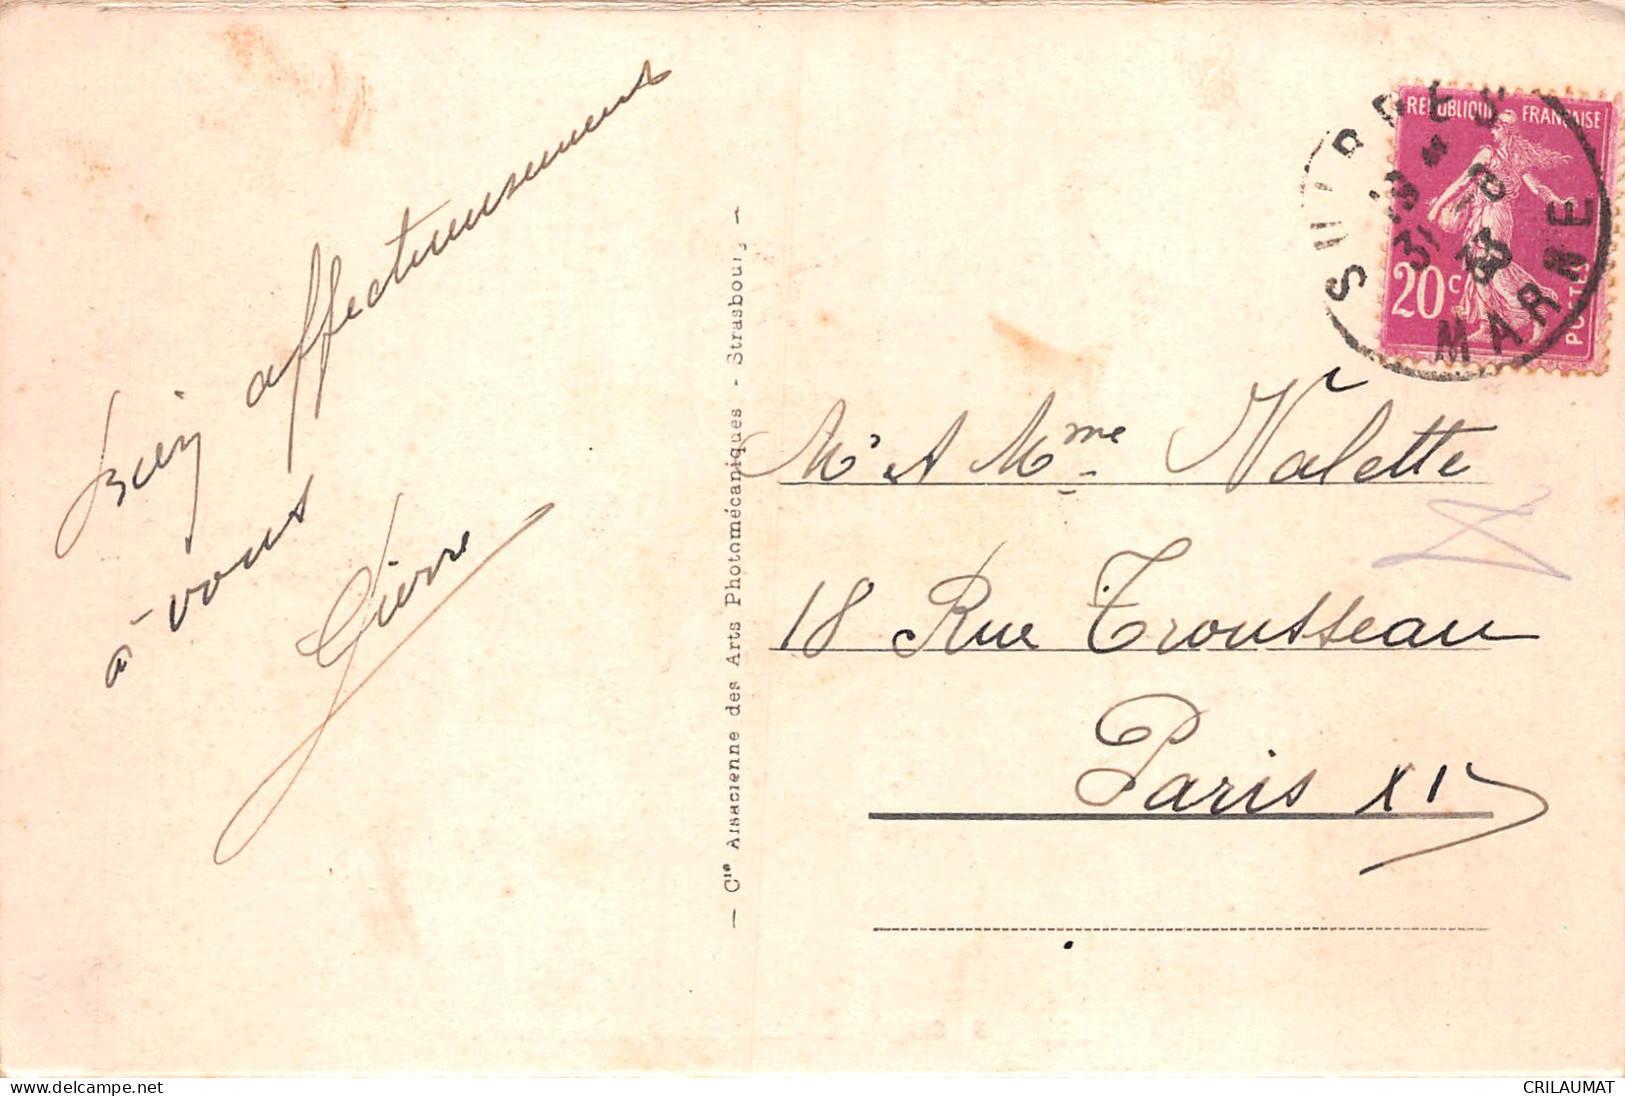 Bien affectueusement
à vous
Pierre
— Cie Alsacienne des Arts Photomécaniques - Strasbourg —
RÉPUBLIQUE FRANÇAISE
20c
POSTES
SUIPPES
31 -8
33
MARNE
Mr & Mme Valette
18 Rue Trousseau
Paris XI
CRILAUMAT